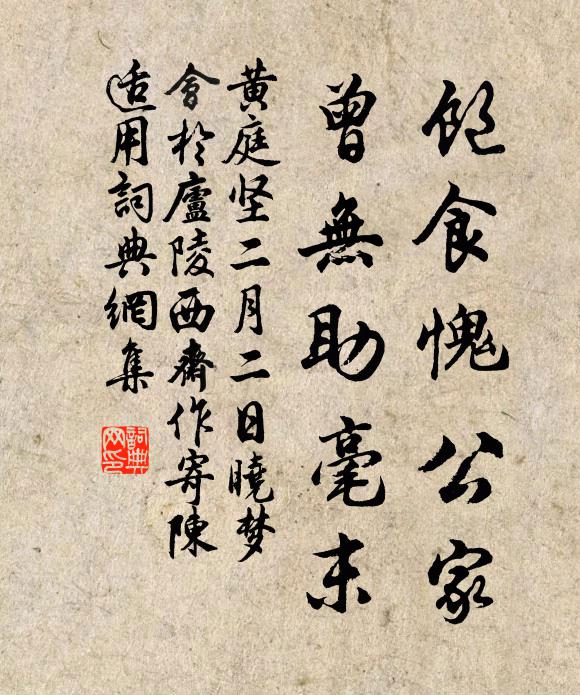 飽食愧公家
曾無助毫末
黃庭坚二月二日曉梦
會於廬陵西齋作寄陳
适用詞典網集
詞典
网印